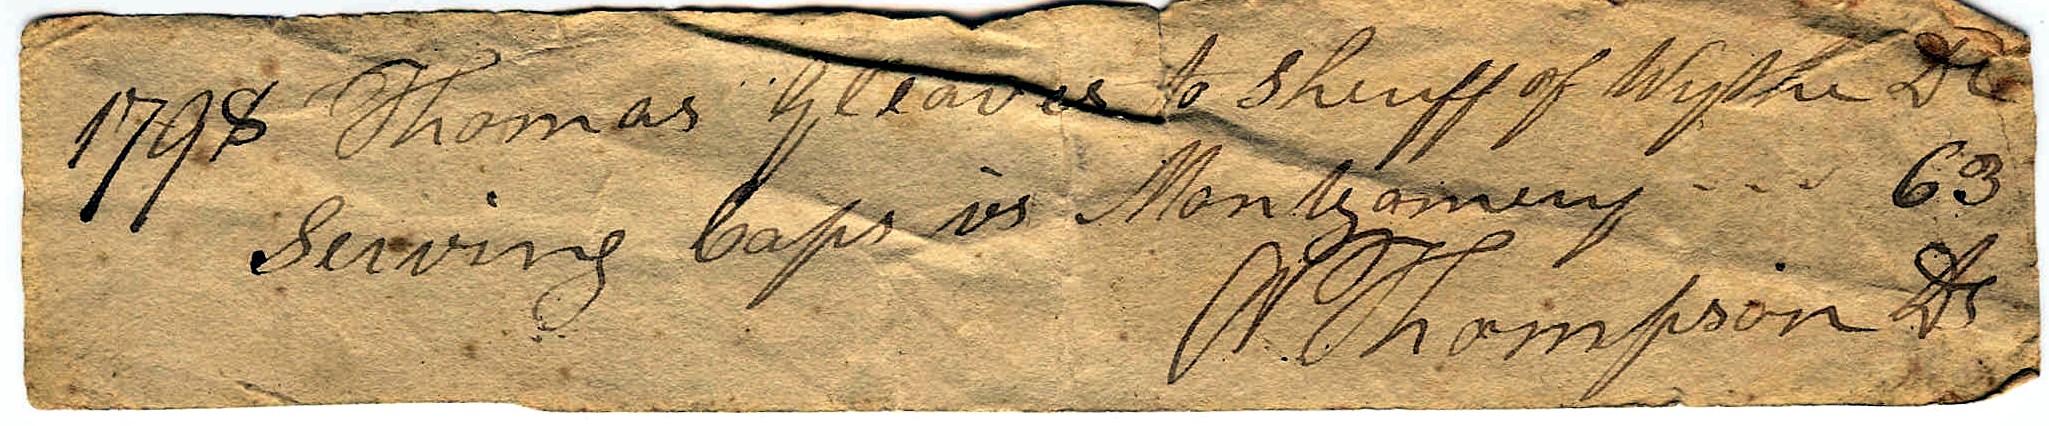 1798 Thomas Gleaves to Sheriff of Wythe Dr
Serving Caps vs Montgomery --- 63
N Thompson Ds